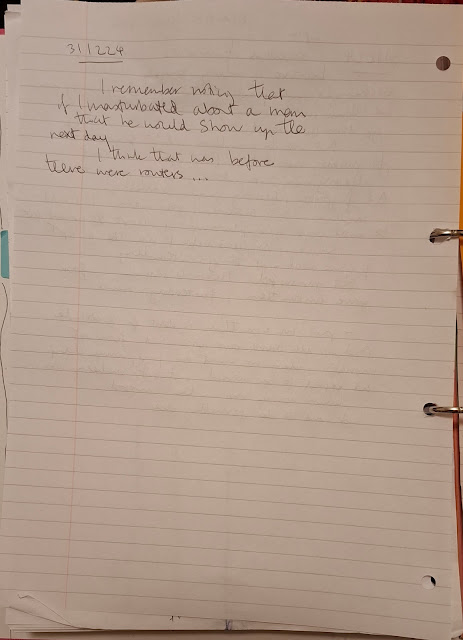 311224
I remember noting that
if I masturbated about a man
that he would show up the
next day
I think that was before
there were routers ...